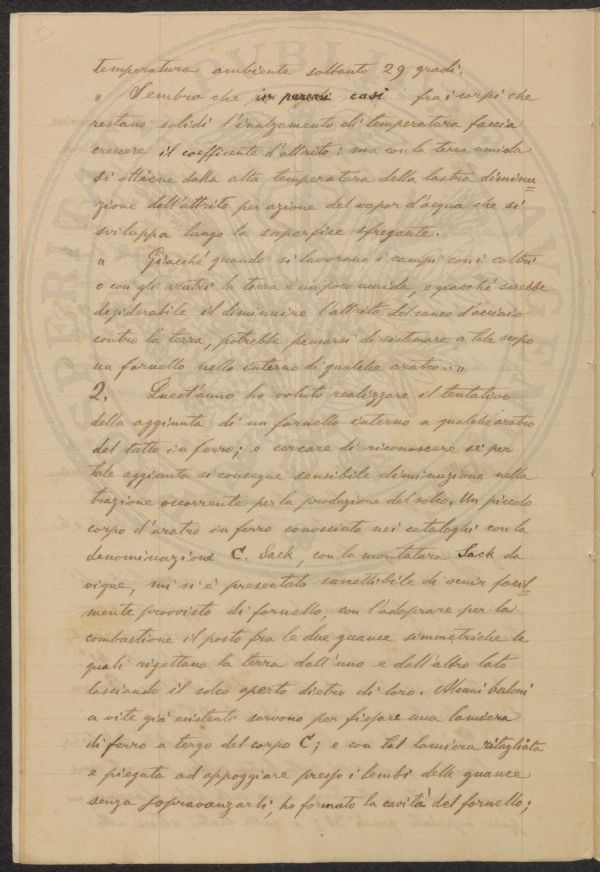 temperatura ambiente soltanto 29 gradi.
" Sembra che in parecchi casi fra i corpi che
restano solidi l'inalzamento di temperatura faccia
crescere il coefficente d'attrito: ma con la terra umida
si ottiene dalla alta temperatura della lastra diminu=
zione dell'attrito per azione del vapor d'acqua che si
sviluppa lungo la superfice sfregante.
" Giacché quando si lavorano i campi con i coltri
o con gli aratri la terra è un poco umida, e giacché sarebbe
desiderabile il diminuire l'attrito del cuneo d'acciaio
contro la terra, potrebbe pensarsi di sistemare a tale scopo
un fornello nello interno di qualche aratro. "
2. Quest'anno ho voluto realizzare il tentativo
della aggiunta di un fornello interno a qualche aratro
del tutto in ferro; e cercare di riconoscere se per
tale aggiunta si consegue sensibile diminuzione nella
trazione occorrente per la produzione del solco. Un piccolo
corpo d'aratro in ferro conosciuto nei cataloghi con la
denominazione C. Sack, con la montatura Sack da
vigne, mi si è presentato suscettibile di venir facil=
mente provvisto di fornello, con l'adoprare per la
combustione il posto fra le due guance simmetriche le
quali rigettano la terra dall'uno e dall'altro lato
lasciando il solco aperto dietro di loro. Alcuni buloni
a vite già esistenti servono per fissare una lamiera
di ferro a tergo del corpo C; e con tal lamiera ritagliata
e piegata ad appoggiare presso i lembi delle guance
senza sopravanzarli, ho formato la cavità del fornello;